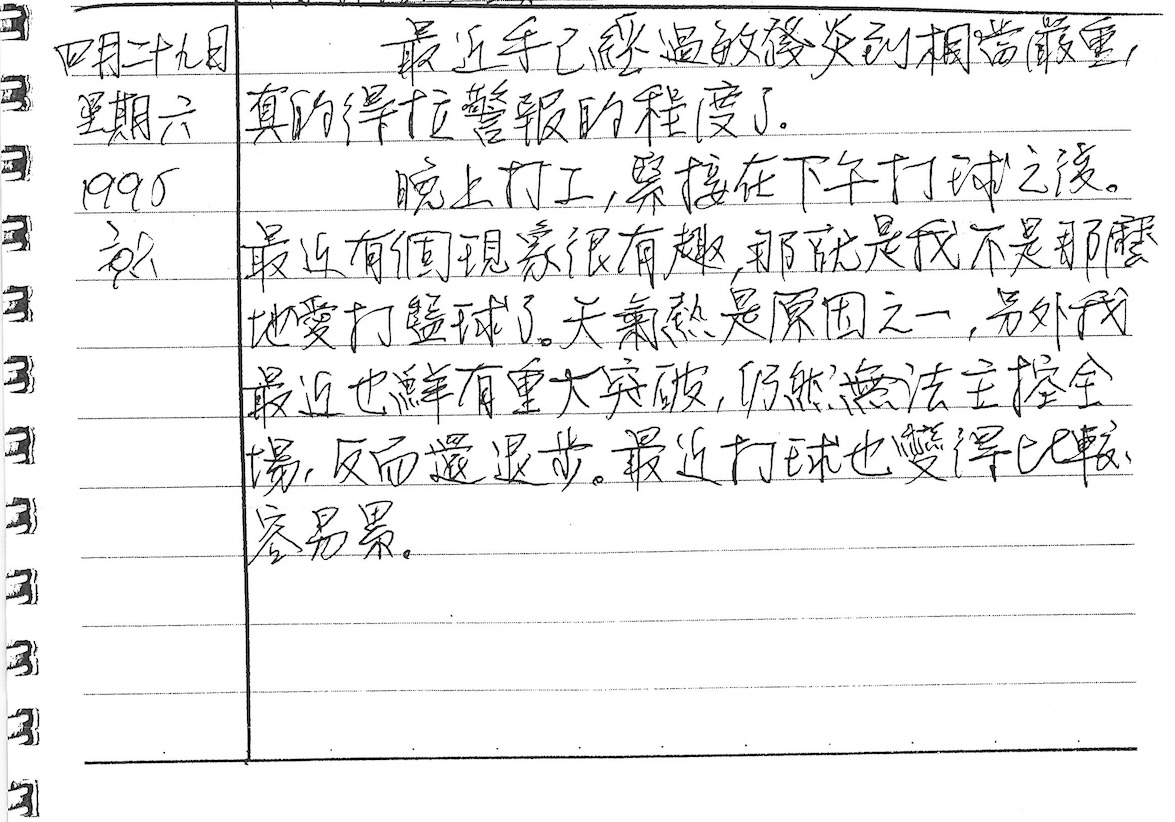 四月二十九日
星期六
1995
最近手已經過敏發炎到相當嚴重,
真的得拉警報的程度了.
晚上打工,緊接在下午打球之後。
最近有個現象很有趣,那就是我不是那麼
地愛打籃球了。天氣熱是原因之一,另外我
最近也鮮有重大突破,仍然無法主控全
場,反而還退步。最近打球也變得比較
容易累。